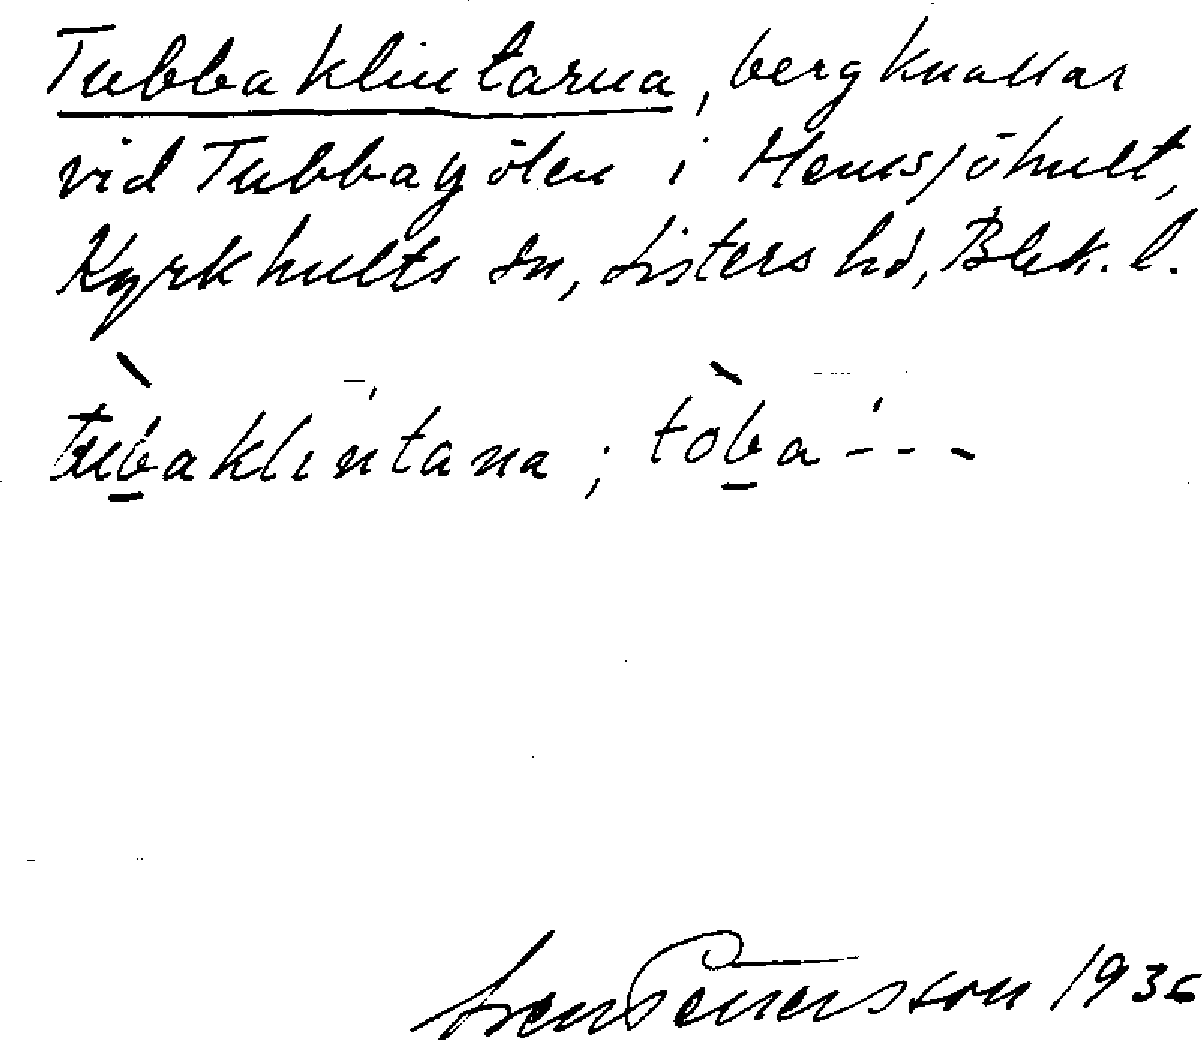 Tubbaklintarna, bergknallar
vid Tubbagölen i Hemsjöhult,
Kyrkhults sn, Listers hd, Blek. l.
tùbaklíntana ; tòba´---
Sven Petersson 1936